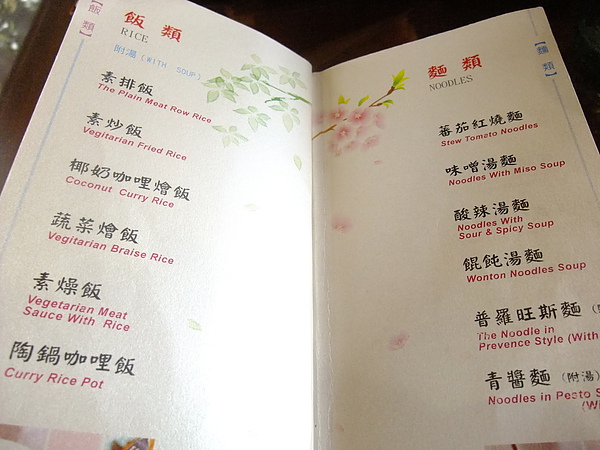 【飯類】
飯 類
RICE
附湯(WITH SOUP)
素排飯
The Plain Meat Row Rice
素炒飯
Vegitarian Fried Rice
椰奶咖哩燴飯
Coconut Curry Rice
蔬菜燴飯
Vegitarian Braise Rice
素燥飯
Vegetarian Meat
Sauce With Rice
陶鍋咖哩飯
Curry Rice Pot
【麵類】
麵 類
NOODLES
蕃茄紅燒麵
Stew Tomato Noodles
味噌湯麵
Noodles With Miso Soup
酸辣湯麵
Noodles With
Sour & Spicy Soup
餛飩湯麵
Wonton Noodles Soup
普羅旺斯麵
The Noodle in
Prevence Style (With
青醬麵 (附湯)
Noodles in Pesto S
(Wi